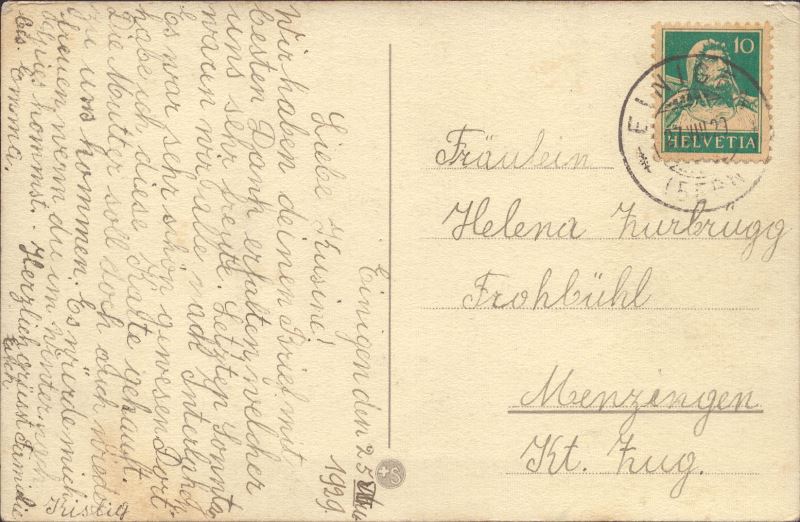 Einigen den 25.
1929.
Liebe Kusine!
Wir haben deinen Brief mit
besten Dank erhalten welcher
uns sehr freute. Letzten Sonntag
waren wir alle nach Interlaken
Es war sehr schön gewesen Dort
habe ich diese Karte gekauft.
Die Mutter soll doch auch wieder
zu uns kommen. Es würde mich
freuen wenn du im Winter auch
kommst. Herzlich grüsst Familie
Emma.
Fräulein
Helena Zurbrügg
Frohbühl
Menzingen
Kt. Zug.
10
HELVETIA
EINIGEN
(BERN)